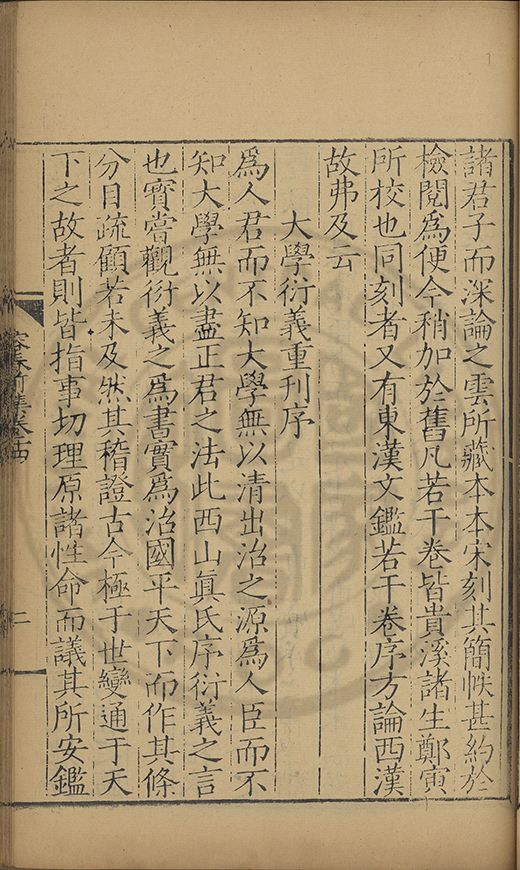 諸君子而深論之雲所藏本本宋刻其簡帙甚約於
檢閱為便今稍加於舊凡若干卷皆貴溪諸生鄭寅
所校也同刻者又有東漢文鑑若干卷序方論西漢
故弗及云
大學衍義重刊序
為人君而不知大學無以清出治之源為人臣而不
知大學無以盡正君之法此西山眞氏序衍義之言
也寶嘗觀衍義之為書實為治國平天下而作其條
分目疏顧若未及然其稽證古今極于世變通于天
下之故者則皆指事切理原諸性命而議其所安鑑
容春前集卷十四
二